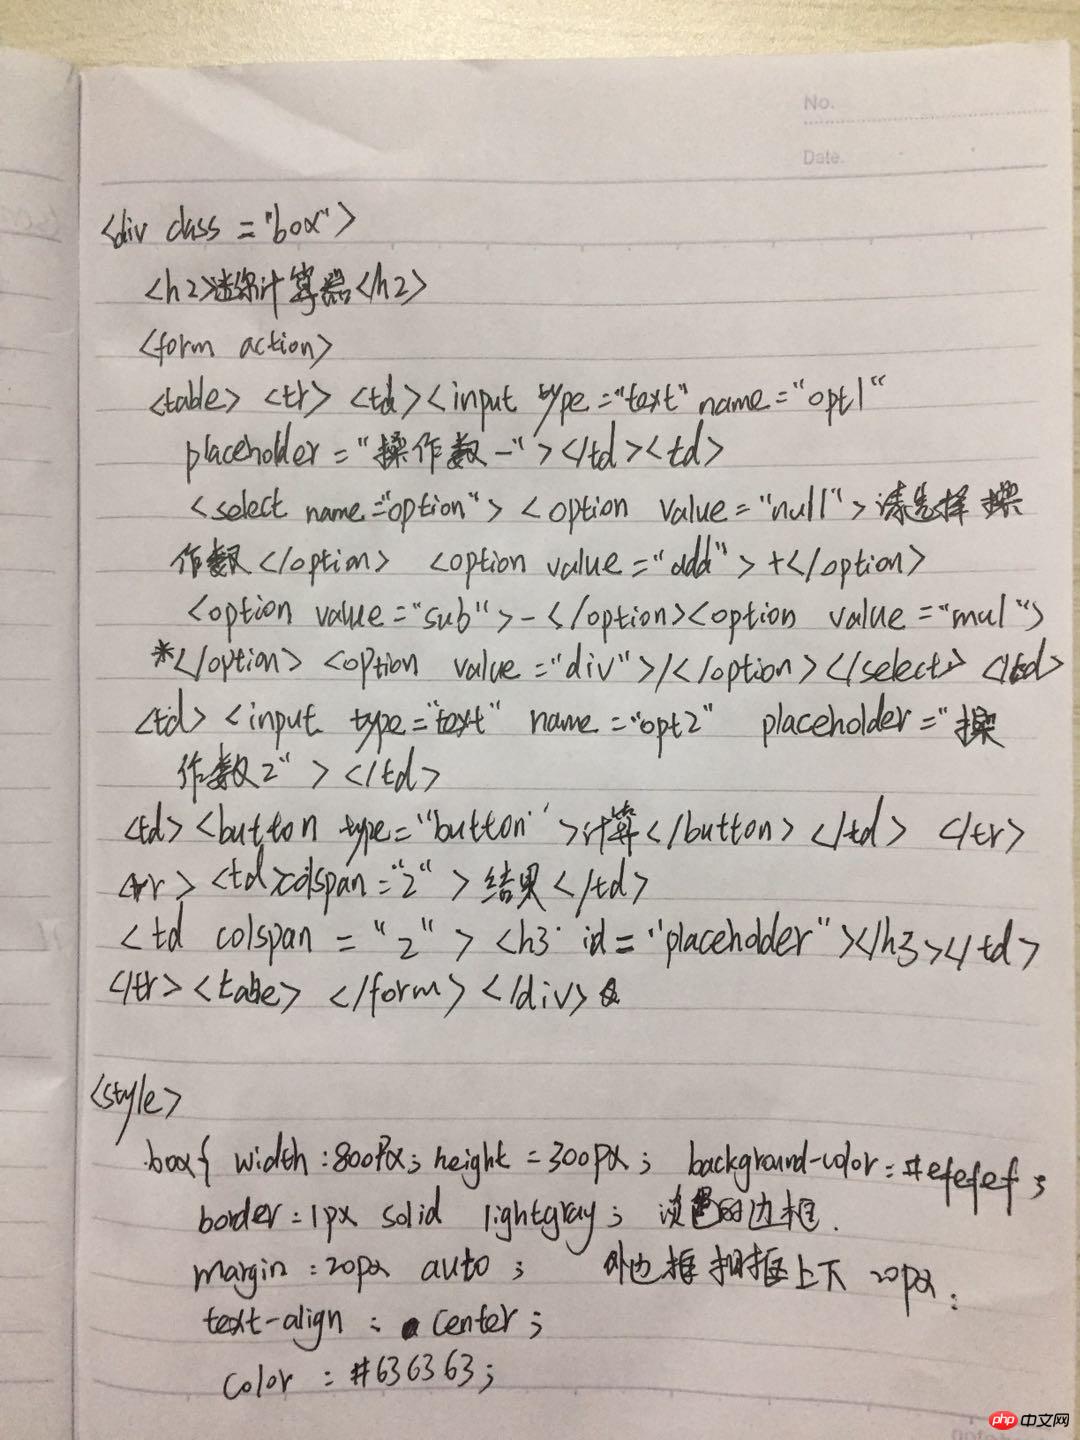 No.
Date.
<div class="box">
<h2>迷你计算器</h2>
<form action>
<table> <tr> <td><input type="text" name="opt1"
placeholder="操作数一"></td><td>
<select name="option"> <option value="null">请选择操
作数</option> <option value="add">+</option>
<option value="sub">-</option><option value="mul">
*</option> <option value="div">/</option></select> </td>
<td> <input type="text" name="opt2" placeholder="操
作数2"></td>
<td> <button type="button">计算</button> </td> </tr>
<tr> <td>colspan="2">结果</td>
<td colspan="2"> <h3 id="placeholder"></h3></td>
</tr><table> </form></div>
<style>
.box{ width:800px; height=300px; background-color:#efefef;
border:1px solid lightgray; 淡色的边框.
margin:20px auto; 外边框 框上下 20px;
text-align: center;
color:#636363;
php 中文网